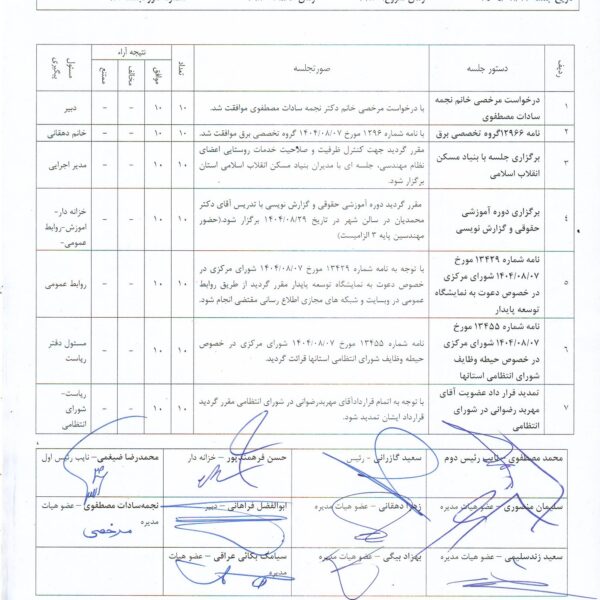 ردیف
دستور جلسه
صورتجلسه
تعداد
نتیجه آراء
موافق
مخالف
ممتنع
مسئول پیگیری
۱
درخواست مرخصی خانم نجمه
سادات مصطفوی
با درخواست مرخصی خانم دکتر نجمه سادات مصطفوی موافقت شد.
۱۰
۱۰
-
-
دبیر
۲
نامه ۱۲۹۶۶گروه تخصصی برق
با نامه شماره ۱۲۹۶ مورخ ۱۴۰۴/۰۸/۰۷ گروه تخصصی برق موافقت شد.
۱۰
۱۰
-
-
خانم دهقانی
۳
برگزاری جلسه با بنیاد مسکن
انقلاب اسلامی
مقرر گردید جهت کنترل ظرفیت و صلاحیت خدمات روستایی اعضای
نظام مهندسی، جلسه ای با مدیران بنیاد مسکن انقلاب اسلامی استان
برگزار شود.
۱۰
۱۰
-
-
مدیر اجرایی
۴
برگزاری دوره آموزشی
حقوقی و گزارش نویسی
مقرر گردید دوره آموزشی حقوقی و گزارش نویسی با تدریس آقای دکتر
محمدیان در سالن شهر در تاریخ ۱۴۰۴/۰۸/۲۹ برگزار شود.(حضور
مهندسین پایه ۳ الزامیست)
۱۰
۱۰
-
-
خزانه دار-
اموزش-روابط
عمومی-
۵
نامه شماره ۱۳۴۲۹ مورخ
۱۴۰۴/۰۸/۰۷ شورای مرکزی
در خصوص دعوت به نمایشگاه
توسعه پایدار
با توجه به نامه شماره ۱۳۴۲۹ مورخ ۱۴۰۴/۰۸/۰۷ شورای مرکزی در
خصوص دعوت به نمایشگاه توسعه پایدار مقرر گردید از طریق روابط
عمومی در وبسایت و شبکه های مجازی اطلاع رسانی مقتضی انجام شود.
۱۰
۱۰
-
-
روابط عمومی
۶
نامه شماره ۱۳۴۵۵ مورخ
۱۴۰۴/۰۸/۰۷ شورای مرکزی
در خصوص حیطه وظایف
شورای انتظامی استانها
نامه شماره ۱۳۴۵۵ مورخ ۱۴۰۴/۰۸/۰۷ شورای مرکزی در خصوص
حیطه وظایف شورای انتظامی استانها قرائت گردید.
۱۰
۱۰
-
-
مسئول دفتر
ریاست
۷
تمدید قرار داد عضویت آقای
مهربد رضوانی در شورای
انتظامی
با توجه به اتمام قراردادآقای مهربدرضوانی در شورای انتظامی مقرر گردید
قرارداد ایشان تمدید شود.
۱۰
۱۰
-
-
ریاست-
شورای
انتظامی
محمد مصطفوی – نایب رئیس دوم
سعید گازرانی - رئیس
حسن فرهمندپور – خزانه دار
محمدرضا ضیغمی – نایب رئیس اول
سلیمان منصوری – عضو هیات مدیره
زهرا دهقانی – عضو هیات مدیره
ابوالفضل فراهانی – دبیر
نجمه‌سادات مصطفوی – عضو هیات
مدیره
مرخصی
سعید زندسلیمی – عضو هیات مدیره
بهزاد بیگی – عضو هیات مدیره
سیامک یکانی عراقی – عضو هیات
مدیره